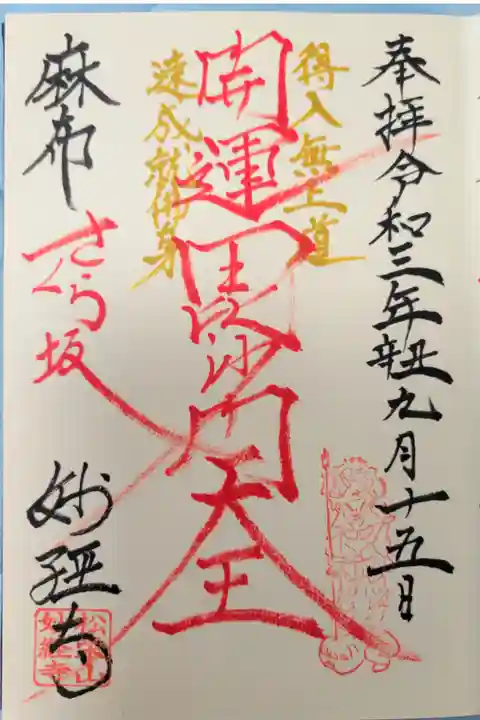 奉拝令和三年辛丑九月十五日
得入無上道
開運毘沙門天王
速成就佛身
麻布
さくら坂
妙経寺
妙経寺